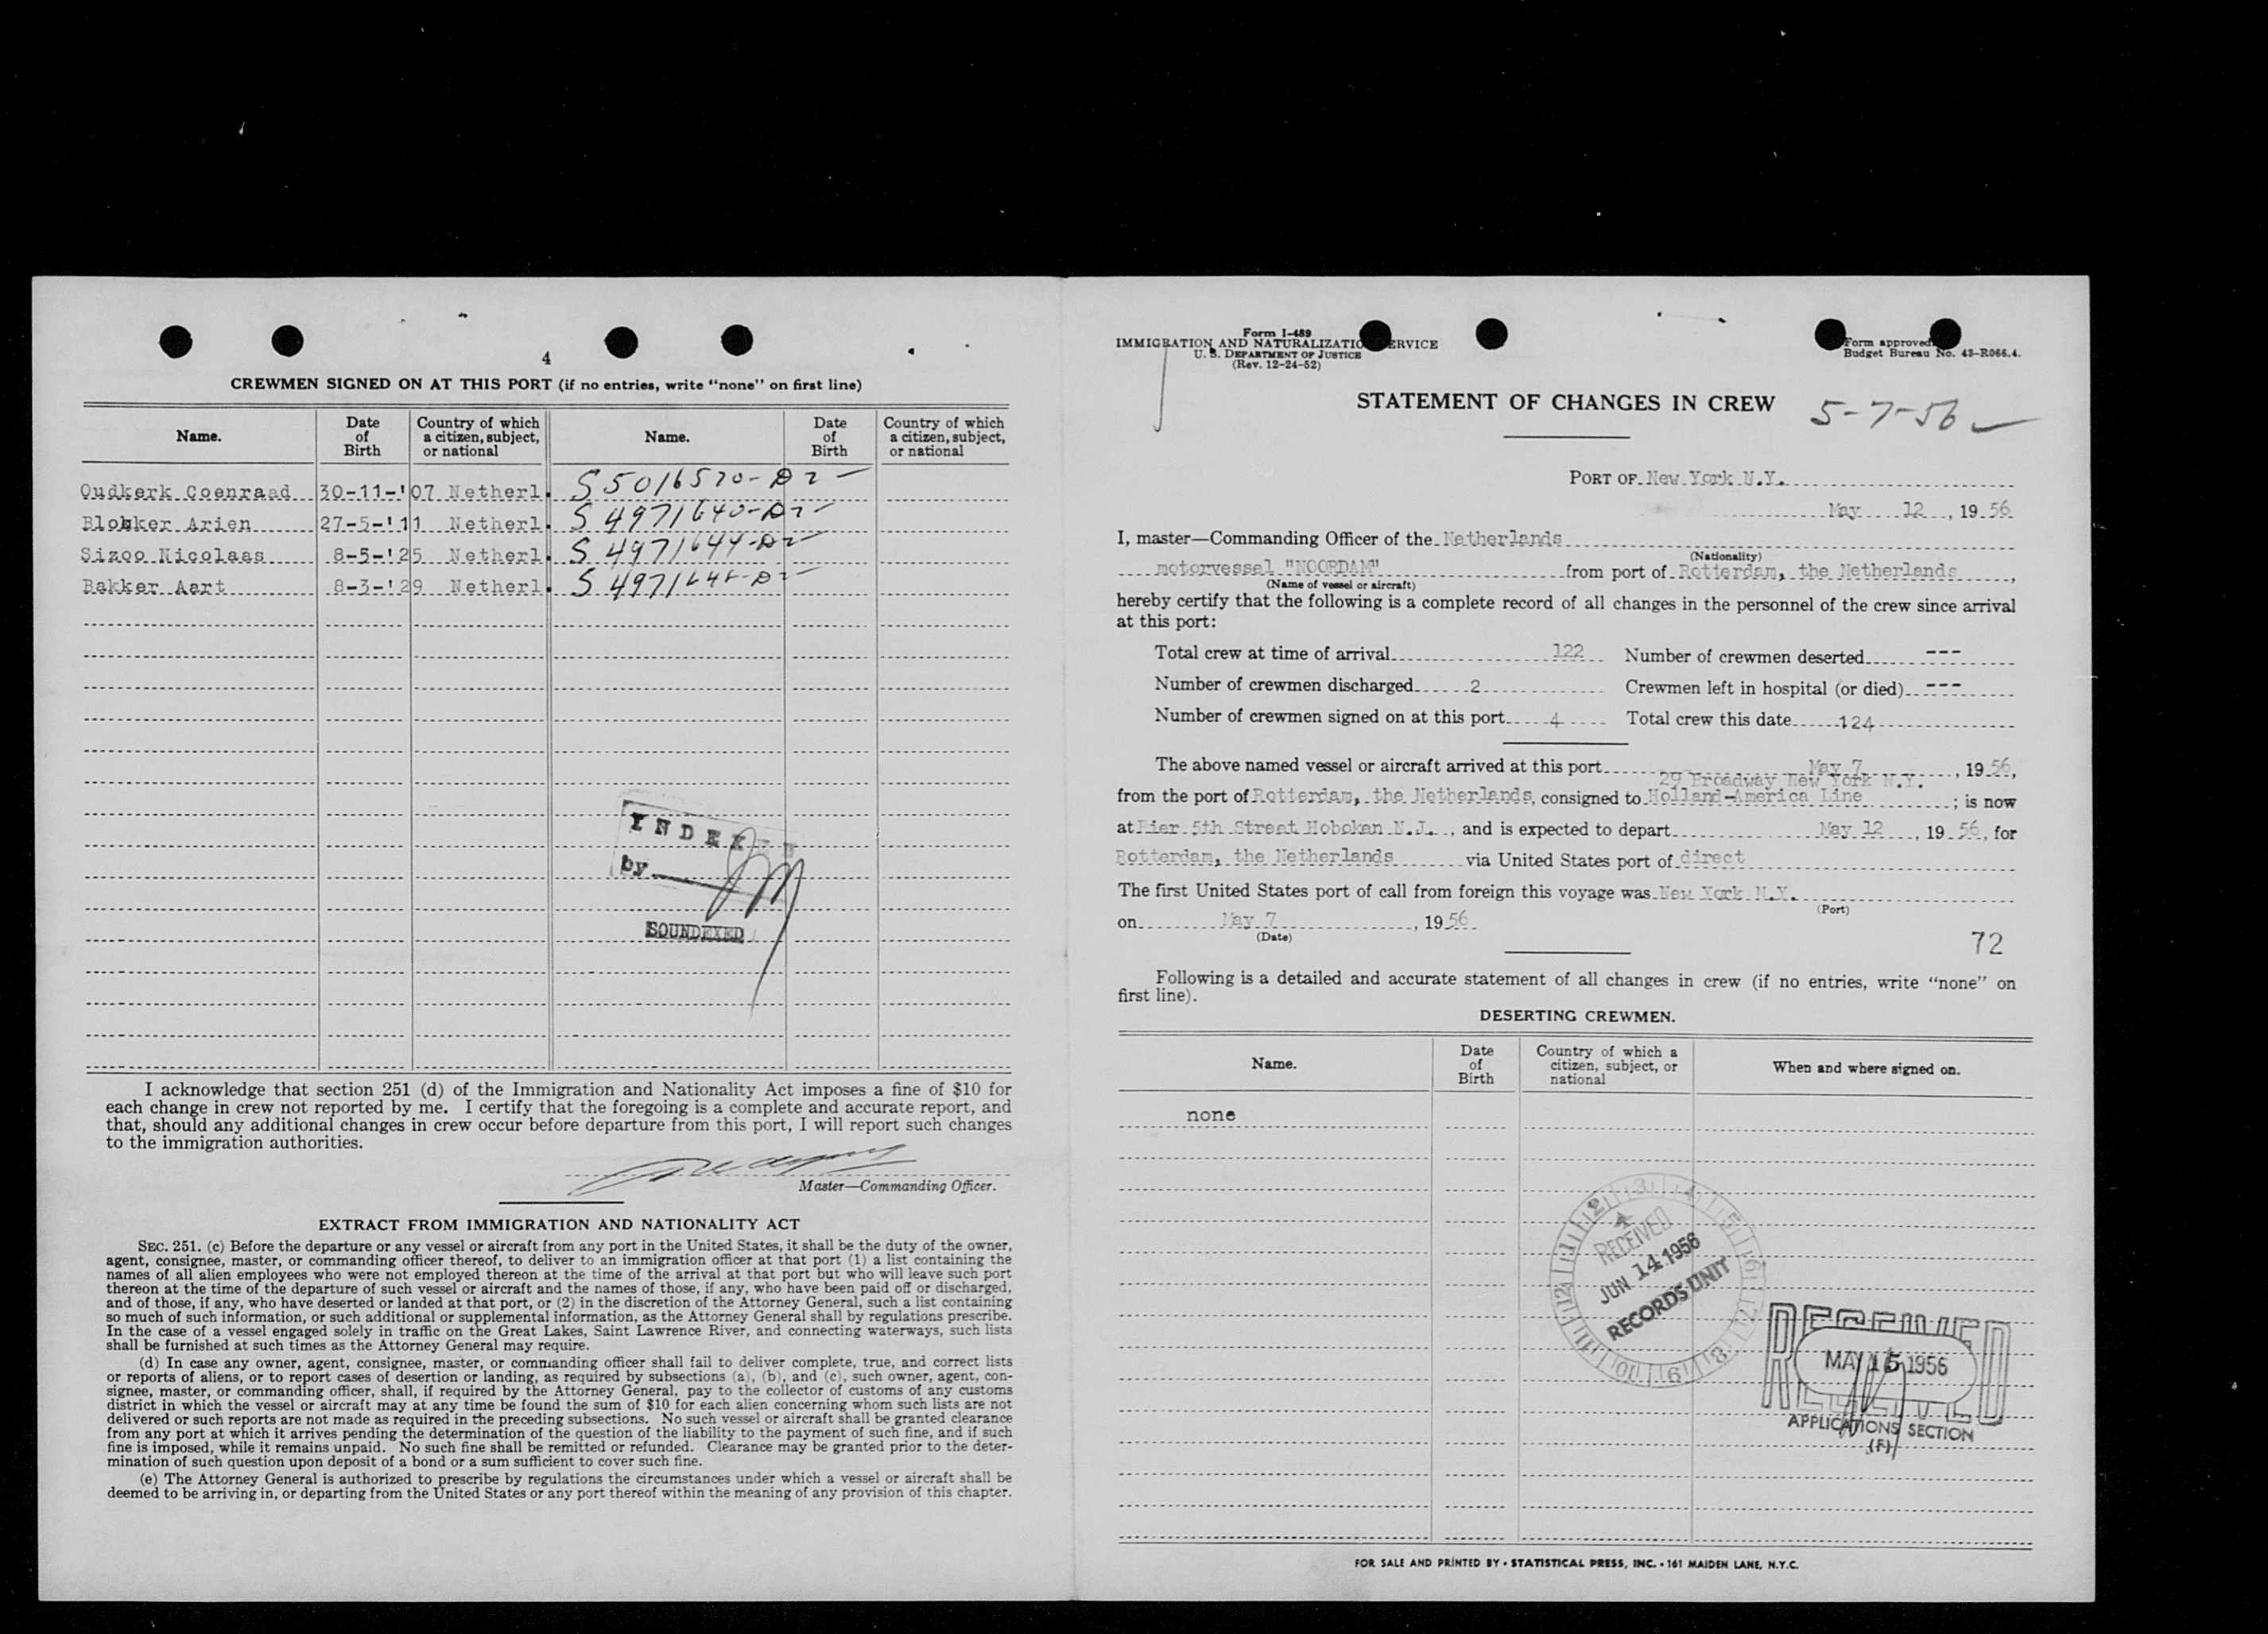 4
CREWMEN SIGNED ON AT THIS PORT (if no entries, write "none" on first line)
Name. Date of Birth Country of which a citizen, subject, or national Name. Date of Birth Country of which a citizen, subject, or national
Oudkerk Coenraad 30-11-'07 Netherl. S 5016570-D2
Blokker Arien 27-5-'11 Netherl. S 4971640-D2
Sizoo Nicolaas 8-5-'25 Netherl. S 4971644-D2
Bakker Aart 8-3-'29 Netherl. S
INDEXED
by
SOUNDEXED
I acknowledge that section 251 (d) of the Immigration and Nationality Act imposes a fine of $10 for
each change in crew not reported by me. I certify that the foregoing is a complete and accurate report, and
that, should any additional changes in crew occur before departure from this port, I will report such changes
to the immigration authorities.
Master—Commanding Officer.
EXTRACT FROM IMMIGRATION AND NATIONALITY ACT
SEC. 251. (c) Before the departure or any vessel or aircraft from any port in the United States, it shall be the duty of the owner,
agent, consignee, master, or commanding officer thereof, to deliver to an immigration officer at that port (1) a list containing the
names of all alien employees who were not employed thereon at the time of the arrival at that port but who will leave such port
thereon at the time of the departure of such vessel or aircraft and the names of those, if any, who have been paid off or discharged,
and of those, if any, who have deserted or landed at that port, or (2) in the discretion of the Attorney General, such a list containing
so much of such information, or such additional or supplemental information, as the Attorney General shall by regulations prescribe.
In the case of a vessel engaged solely in traffic on the Great Lakes, Saint Lawrence River, and connecting waterways, such lists
shall be furnished at such times as the Attorney General may require.
(d) In case any owner, agent, consignee, master, or commanding officer shall fail to deliver complete, true, and correct lists
or reports of aliens, or to report cases of desertion or landing, as required by subsections (a), (b), and (c), such owner, agent, con-
signee, master, or commanding officer, shall, if required by the Attorney General, pay to the collector of customs of any customs
district in which the vessel or aircraft may at any time be found the sum of $10 for each alien concerning whom such lists are not
delivered or such reports are not made as required in the preceding subsections. No such vessel or aircraft shall be granted clearance
from any port at which it arrives pending the determination of the question of the liability to the payment of such fine, and if such
fine is imposed, while it remains unpaid. No such fine shall be remitted or refunded. Clearance may be granted prior to the deter-
mination of such question upon deposit of a bond or a sum sufficient to cover such fine.
(e) The Attorney General is authorized to prescribe by regulations the circumstances under which a vessel or aircraft shall be
deemed to be arriving in, or departing from the United States or any port thereof within the meaning of any provision of this chapter.
Form I-489
IMMIGRATION AND NATURALIZATION SERVICE
U. S. DEPARTMENT OF JUSTICE
(Rev. 12-24-52)
Form approved
Budget Bureau No. 43-R066.4.
STATEMENT OF CHANGES IN CREW
5-7-56
PORT OF New York N.Y.
May 12, 19 56
I, master—Commanding Officer of the Netherlands
(Nationality)
motorvessel "NOORDAM" from port of Rotterdam, the Netherlands,
(Name of vessel or aircraft)
hereby certify that the following is a complete record of all changes in the personnel of the crew since arrival
at this port:
Total crew at time of arrival 122 Number of crewmen deserted ---
Number of crewmen discharged 2 Crewmen left in hospital (or died) ---
Number of crewmen signed on at this port 4 Total crew this date 124
The above named vessel or aircraft arrived at this port May 7, 19 56,
29 Broadway New York N.Y.
from the port of Rotterdam, the Netherlands, consigned to Holland-America Line; is now
at Pier 5th Street Hoboken N.J., and is expected to depart May 12, 19 56, for
Rotterdam, the Netherlands via United States port of direct
The first United States port of call from foreign this voyage was New York N.Y.
(Port)
on May 7, 19 56
(Date)
72
Following is a detailed and accurate statement of all changes in crew (if no entries, write "none" on
first line).
DESERTING CREWMEN.
Name. Date of Birth Country of which a citizen, subject, or national When and where signed on.
none
RECEIVED
JUN 14 1956
RECORDS UNIT
1 2 3 4 5 6 7 8 9 10 11 12
RECEIVED
MAY 15 1956
APPLICATIONS SECTION
(F)
FOR SALE AND PRINTED BY • STATISTICAL PRESS, INC. • 161 MAIDEN LANE, N.Y.C.